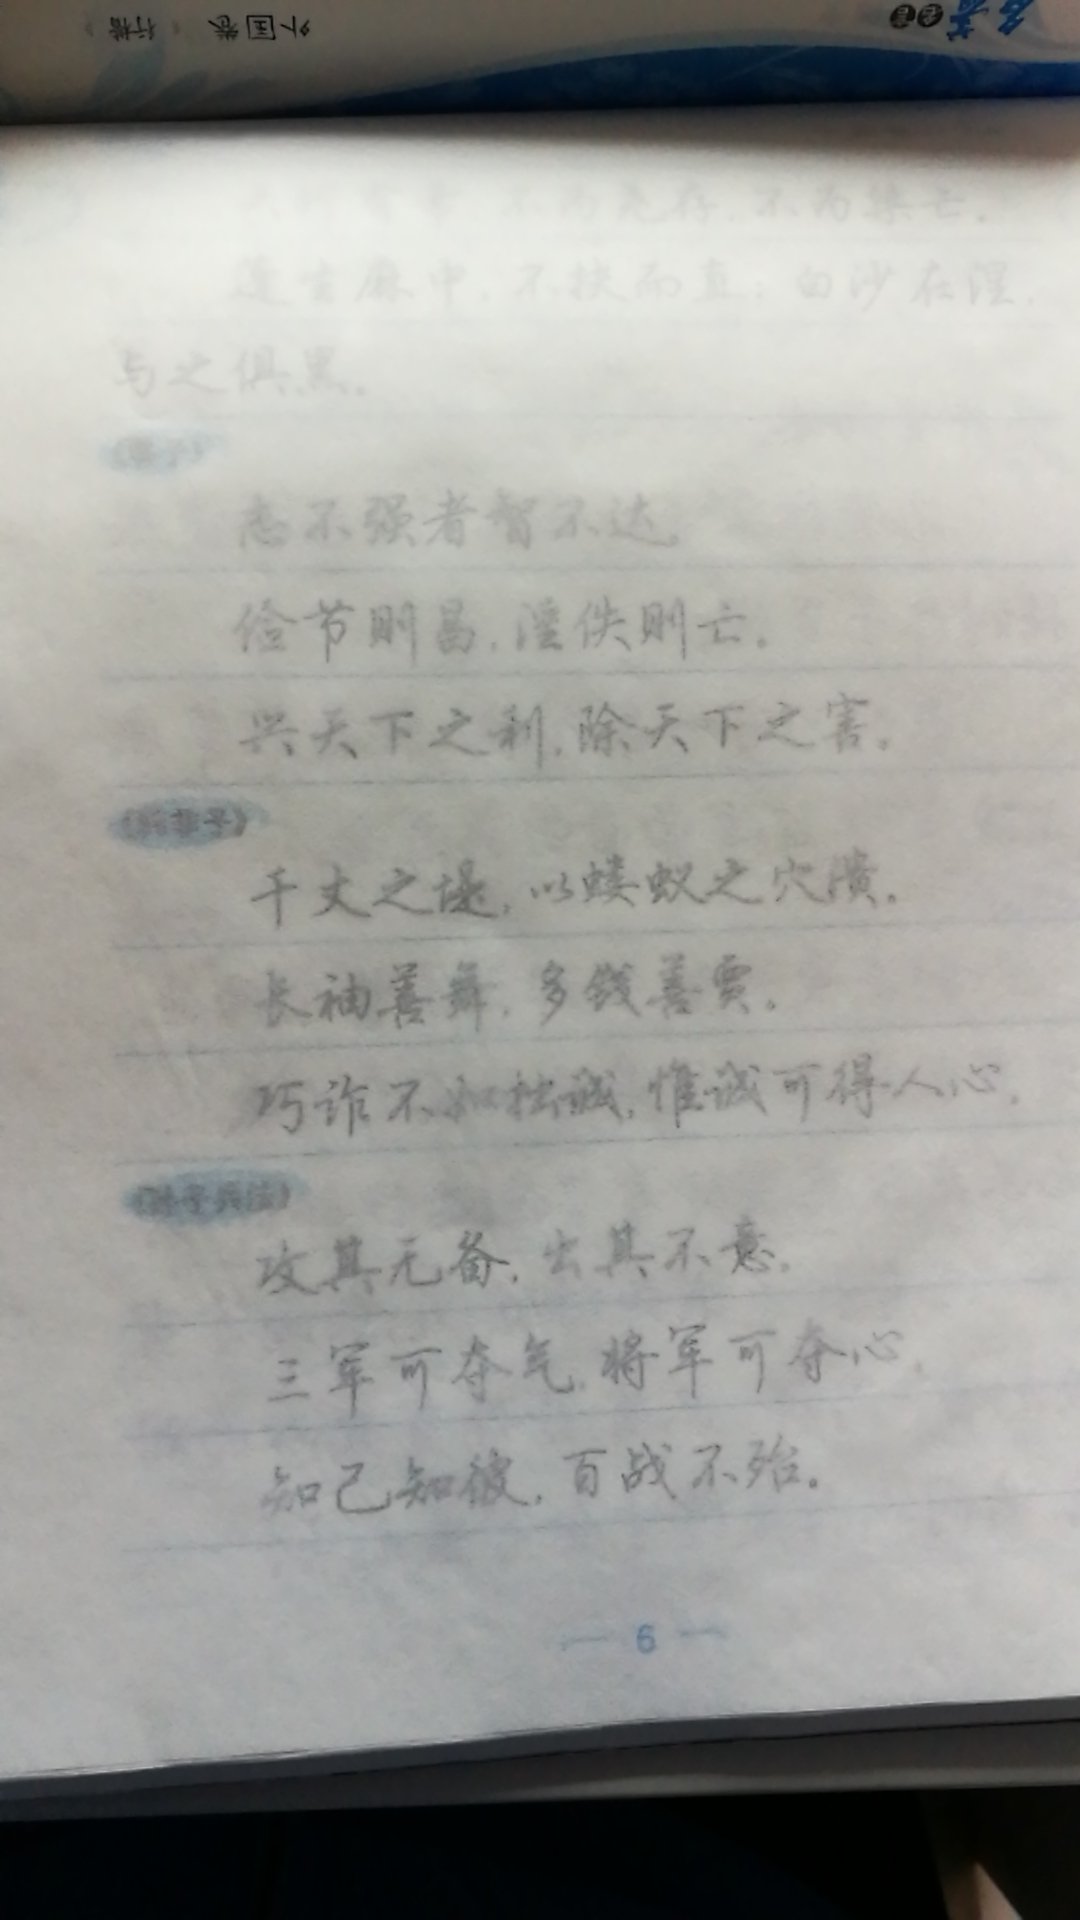 名著名言
外国卷
行楷
不为尧存,不为桀亡。
蓬生麻中,不扶而直;白沙在涅,
与之俱黑。
《墨子》
志不强者智不达。
俭节则昌,淫佚则亡。
兴天下之利,除天下之害。
《韩非子》
千丈之堤,以蝼蚁之穴溃。
长袖善舞,多钱善贾。
巧诈不如拙诚,惟诚可得人心。
《孙子兵法》
攻其无备,出其不意。
三军可夺气,将军可夺心。
知己知彼,百战不殆。
6